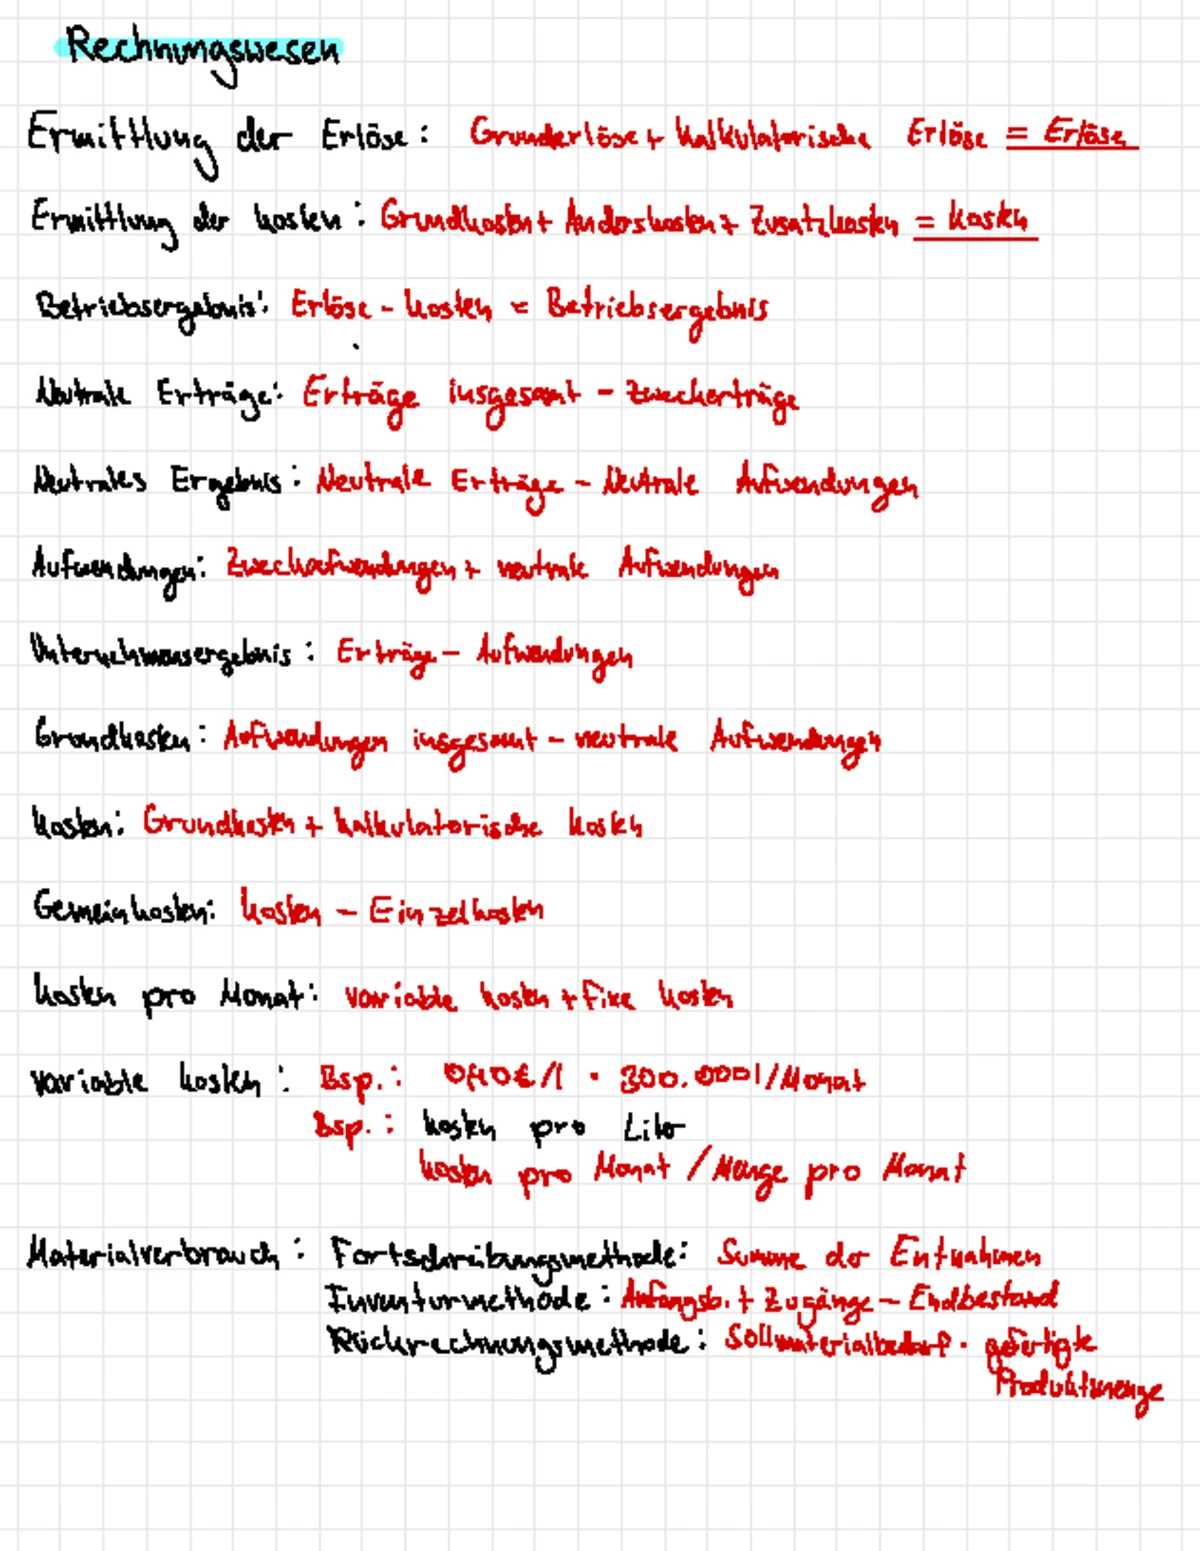 Rechnungswesen
Ermittlung der Erlöse: Grunderlöse + kalkulatorische Erlöse = Erlöse
Ermittlung der Kosten: Grundkosten + Anderskosten + Zusatzkosten = Kosten
Betriebsergebnis: Erlöse - Kosten = Betriebsergebnis
Neutrale Erträge: Erträge insgesamt - Zweckerträge
Neutrales Ergebnis: Neutrale Erträge - Neutrale Aufwendungen
Aufwendungen: Zweckaufwendungen + neutrale Aufwendungen
Unternehmensergebnis: Erträge - Aufwendungen
Grundkosten: Aufwendungen insgesamt - neutrale Aufwendungen
Kosten: Grundkosten + kalkulatorische Kosten
Gemeinkosten: Kosten - Einzelkosten
Kosten pro Monat: variable Kosten + fixe Kosten
variable Kosten: Bsp.: 0,40€/l · 300.000l/Monat
Bsp.: Kosten pro Liter
Kosten pro Monat / Menge pro Monat
Materialverbrauch: Fortschreibungsmethode: Summe der Entnahmen
Inventurmethode: Anfangsb. + Zugänge - Endbestand
Rückrechnungsmethode: Sollmaterialbedarf · gefertigte
Produktmenge